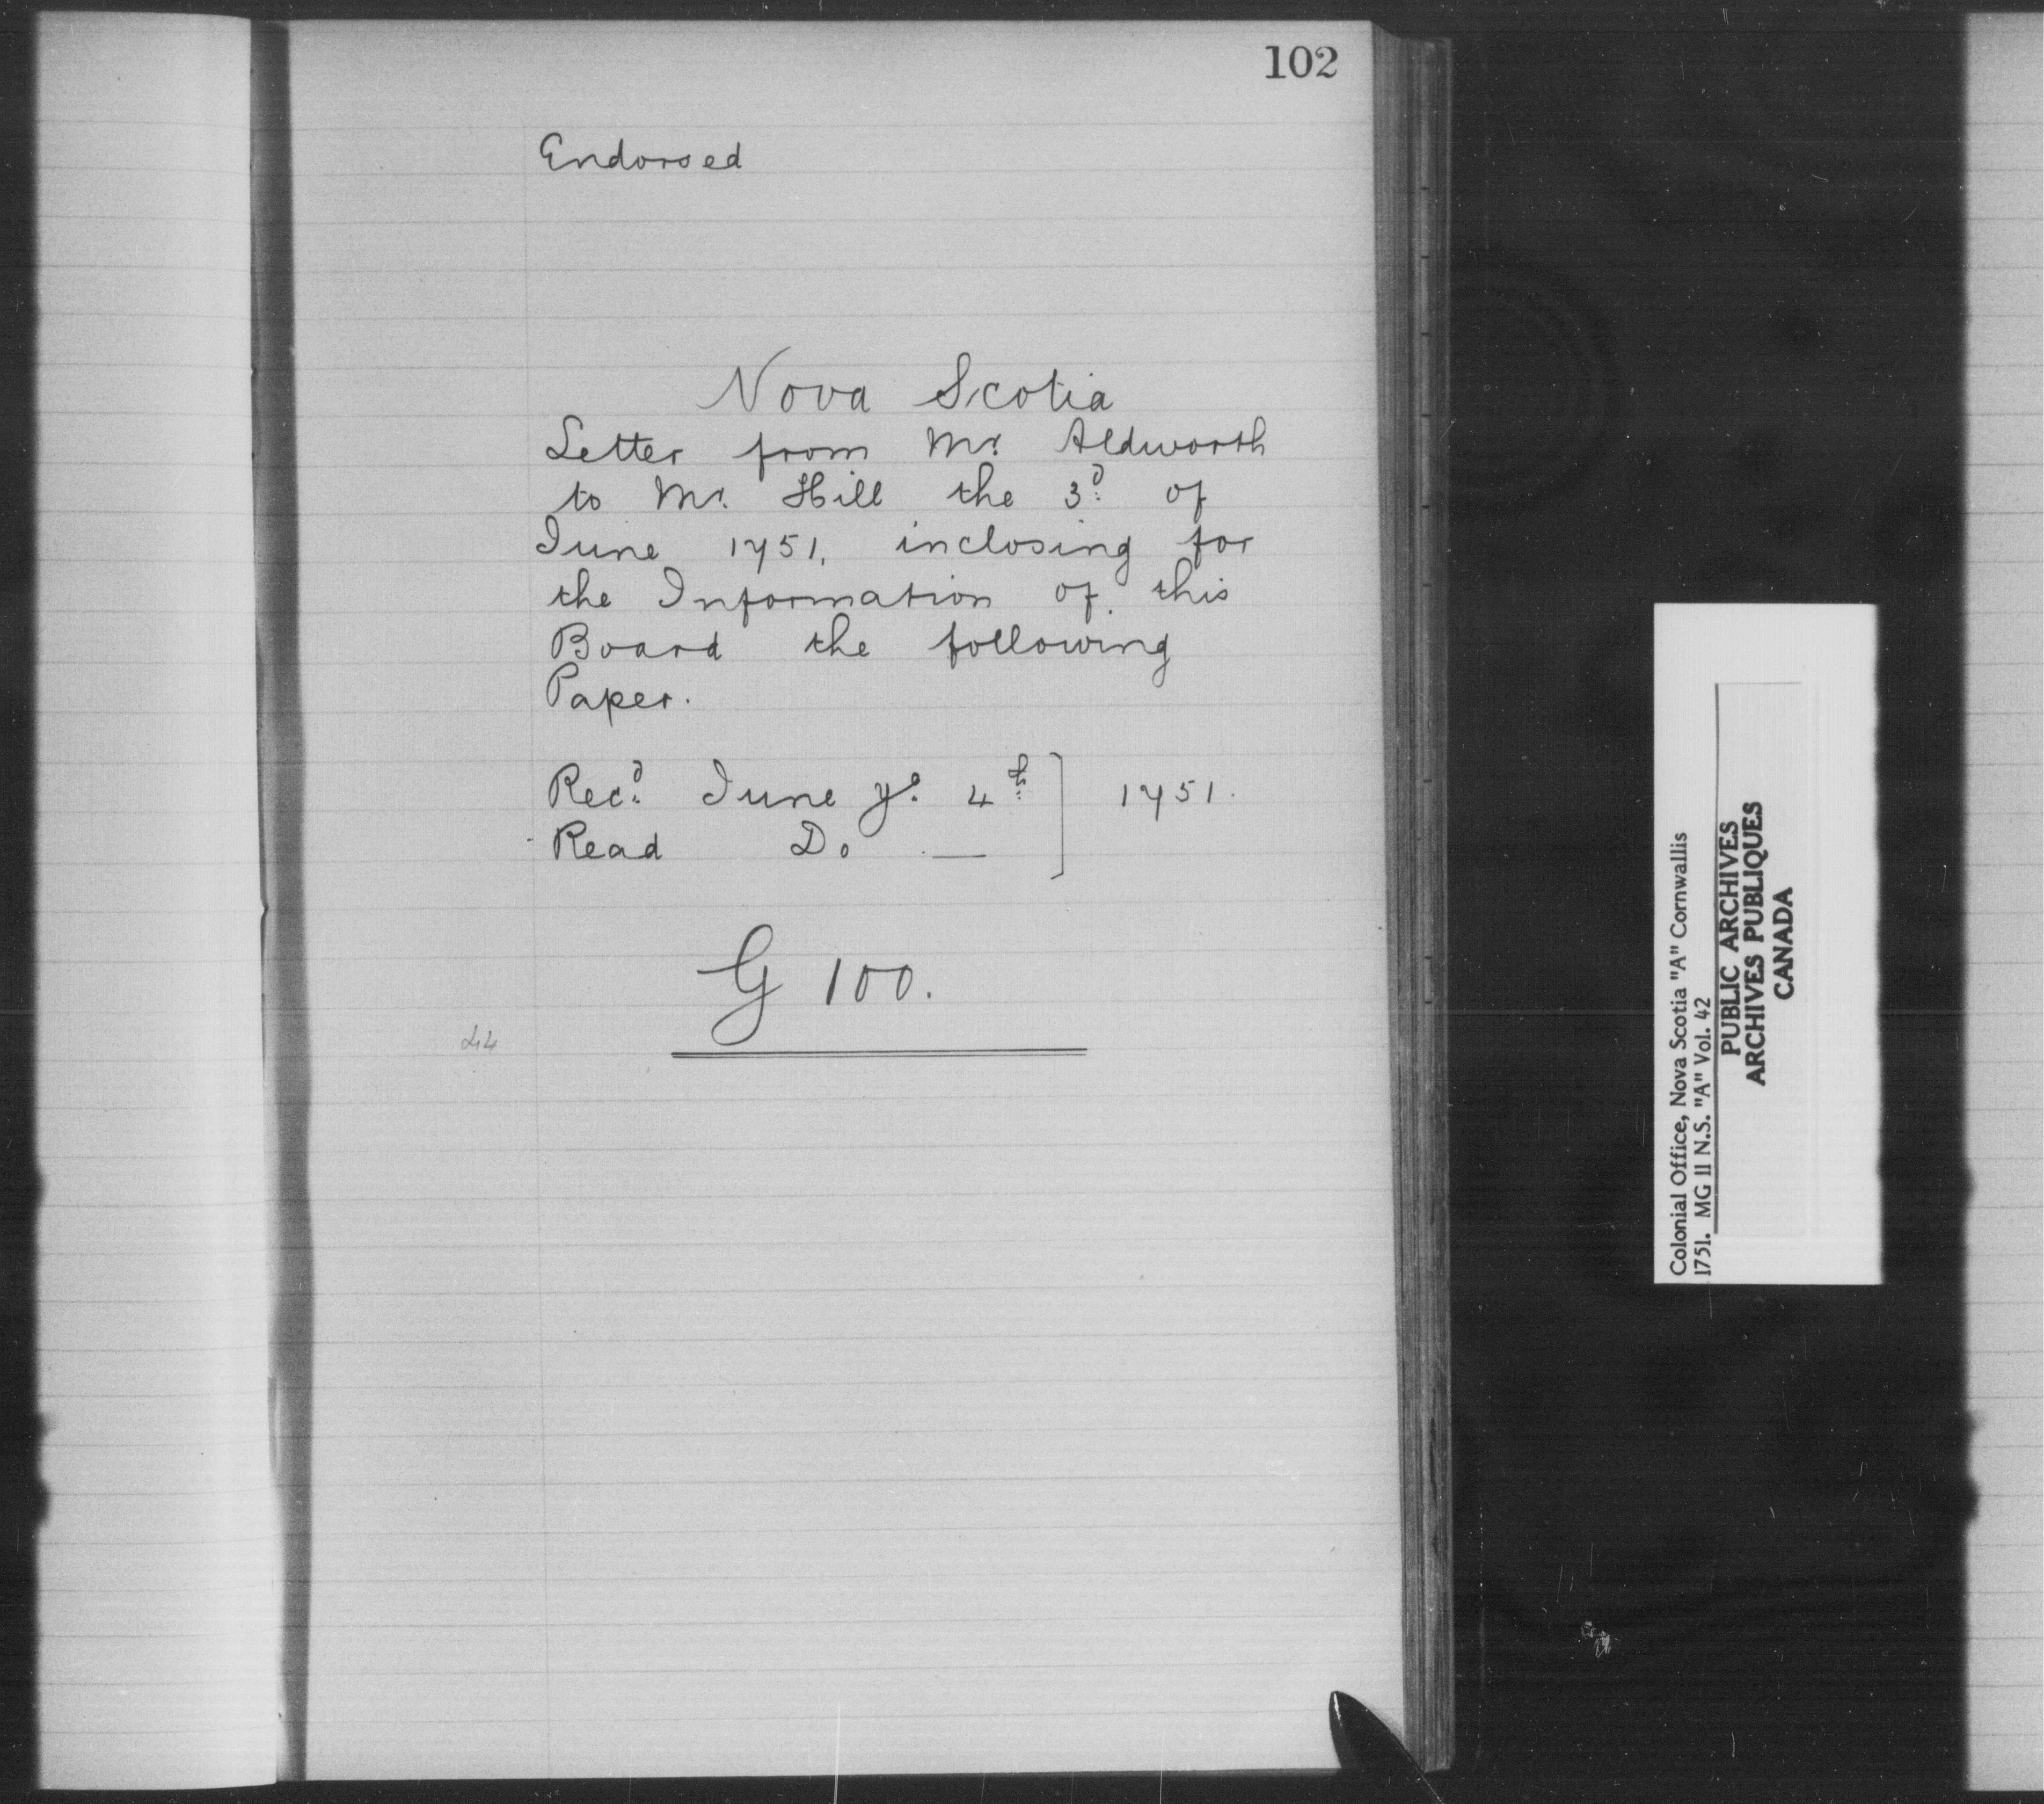 102
Endorsed
Nova Scotia
Letter from Mr. Aldworth
to Mr. Hill the 3d. of
June 1751, inclosing for
the Information of this
Board the following
Paper.
Recd. June ye. 4th ] 1751.
Read Do —
G 100.
44
Colonial Office, Nova Scotia "A" Cornwallis
1751. MG 11 N.S. "A" Vol. 42
PUBLIC ARCHIVES
ARCHIVES PUBLIQUES
CANADA